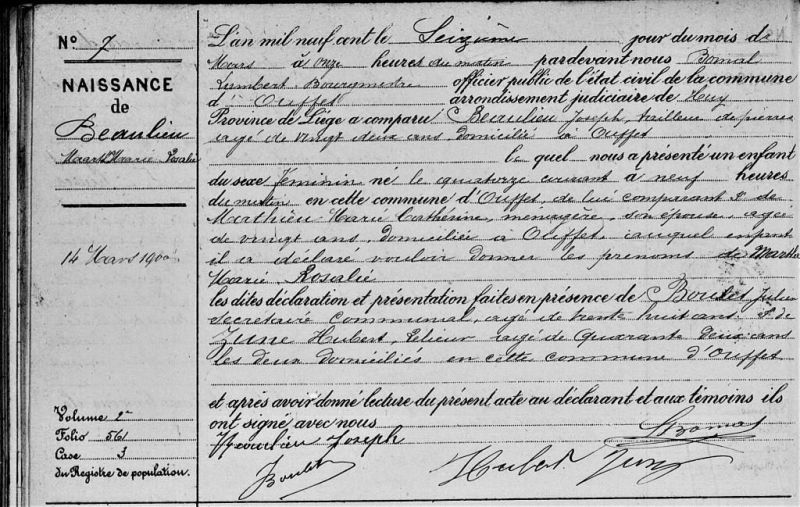 N° 7
NAISSANCE
de
Beaulieu
Marthe Marie Rosalie
14 Mars 1900
Volume 2e
Folio 561
Case 3
du Registre de population.
L'an mil neuf cent le Seizième jour du mois de
Mars à onze heures du matin pardevant nous Bomal
Lambert Bourgmestre officier public de l'état civil de la commune
d'Ouffet arrondissement judiciaire de Huy
Province de Liége a comparu Beaulieu Joseph, tailleur de pierres
agé de vingt deux ans domicilié à Ouffet
le quel nous a présenté un enfant
du sexe féminin né le quatorze courant à neuf heures
du matin en cette commune d'Ouffet, de lui comparant & de
Mathieu Marie Catherine, ménagère, son épouse agée
de vingt ans, domiciliée à Ouffet auquel enfant
il a déclaré vouloir donner les prénoms de Marthe
Marie Rosalie
les dites déclaration et présentation faites en présence de Boulet Julien
secretaire communal, agé de trente huit ans & de
Zune Hubert, agé de quarante deux ans
les deux domiciliés en cette commune d'Ouffet
et après avoir donné lecture du présent acte au déclarant et aux témoins ils
ont signé avec nous
Beaulieu Joseph
L Bomal
Boulet
Hubert Zune